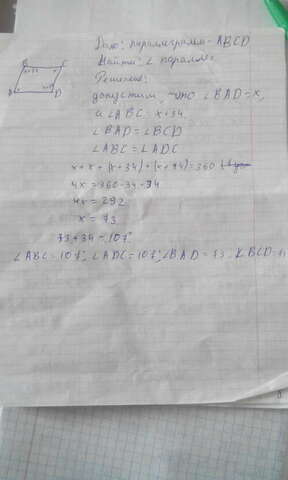 Дано: параллеграмм - ABCD
Найти: ∠ паралл.
Решение:
допустим, что ∠BAD = x,
а ∠ABC = x+34
∠BAD = ∠BCD
∠ABC = ∠ADC
x + x + (x+34) + (x+34) = 360
4x = 360 - 34 - 34
4x = 292
x = 73
73 + 34 = 107
∠ABC = 107°, ∠ADC = 107°, ∠BAD = 73, ∠BCD =
B C
x+34
A D